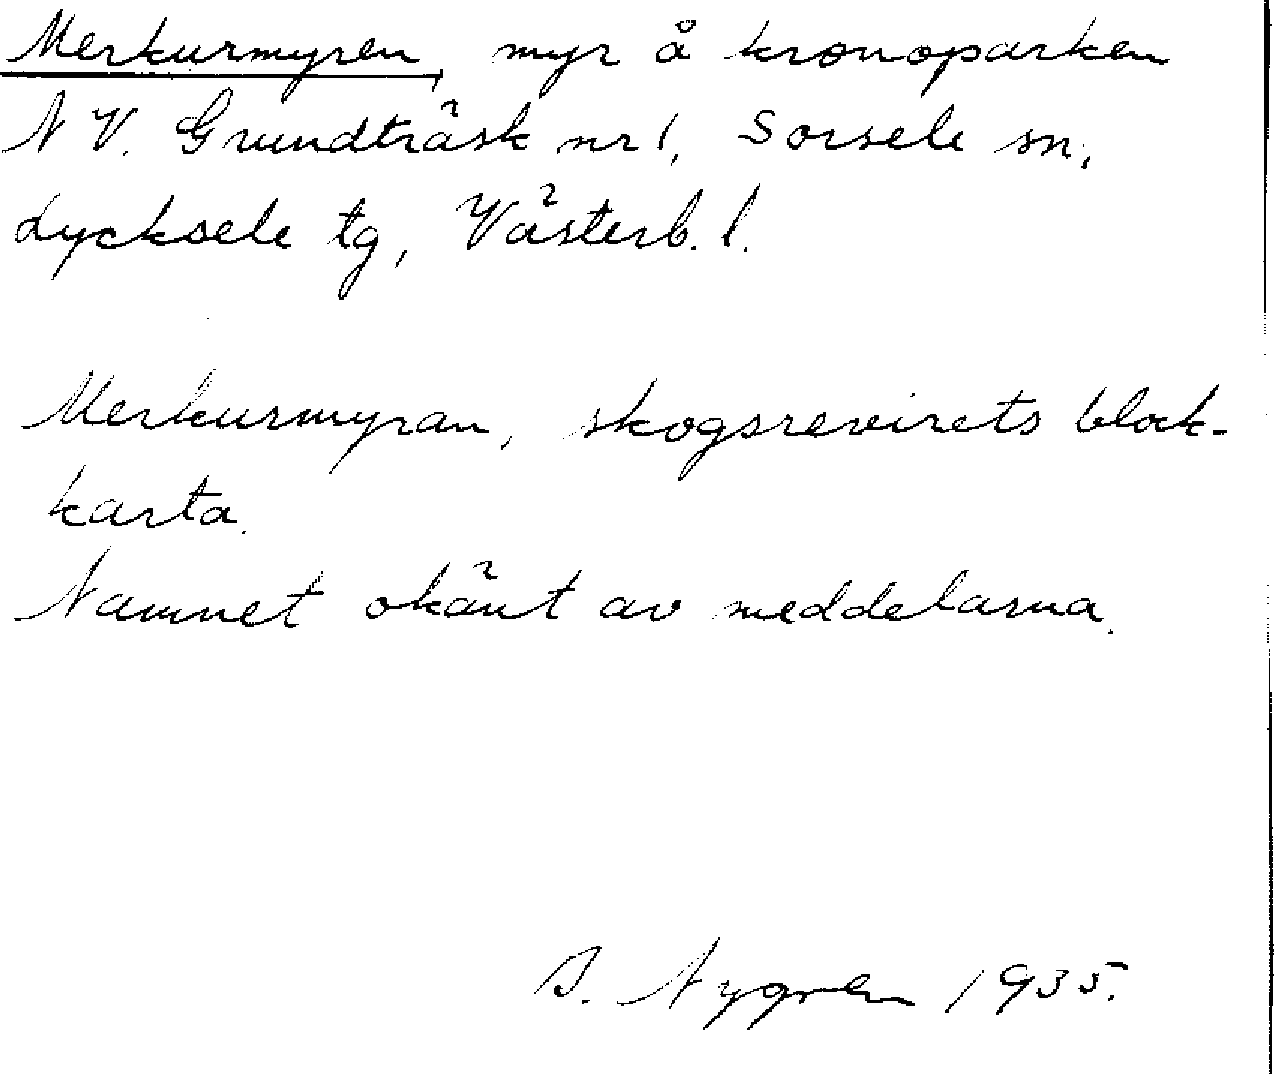 Merkurmyren, myr å kronoparken
N V. Grundträsk nr 1, Sorsele sn,
Lycksele tg, Västerb. l.
Merkurmyran, skogsrevirets block-
karta.
Namnet okänt av meddelarna.
Nygren 1935.